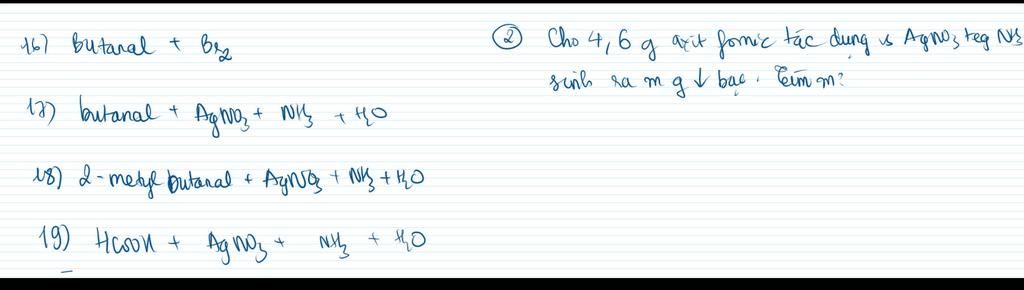 16) Butanal + Br2
17) butanal + AgNO3 + NH3 + H2O
18) 2-metyl butanal + AgNO3 + NH3 + H2O
19) HCOOH + AgNO3 + NH3 + H2O
② Cho 4,6 g axit fomic tác dụng vs AgNO3 trg NH3
sinh ra m g ↓ bạc. Tìm m?